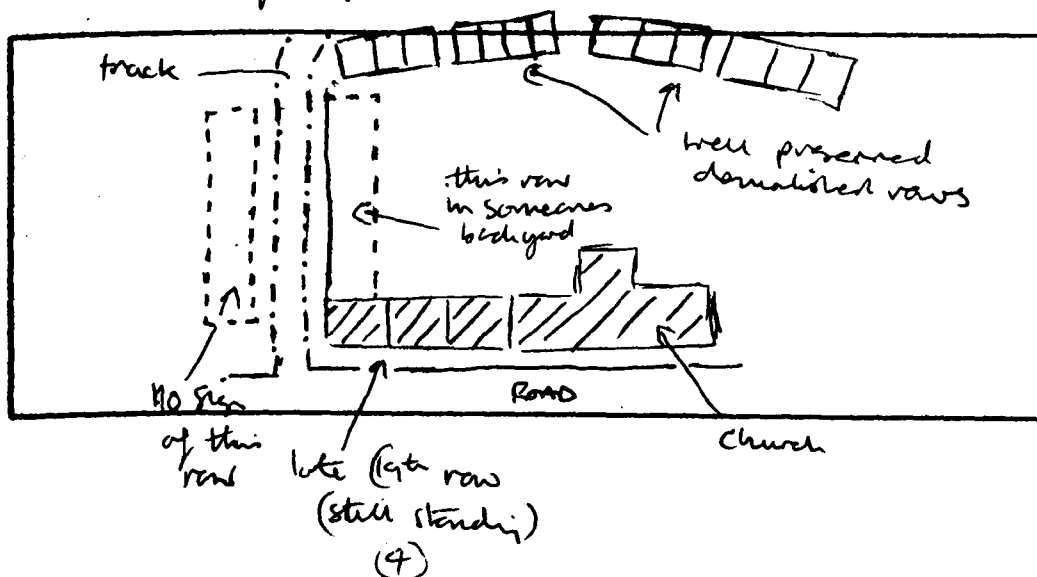 track
well preserved
demolished rows
this row
in someones
backyard
No sign
of this
row
ROAD
Church
late C19th row
(still standing)
(4)